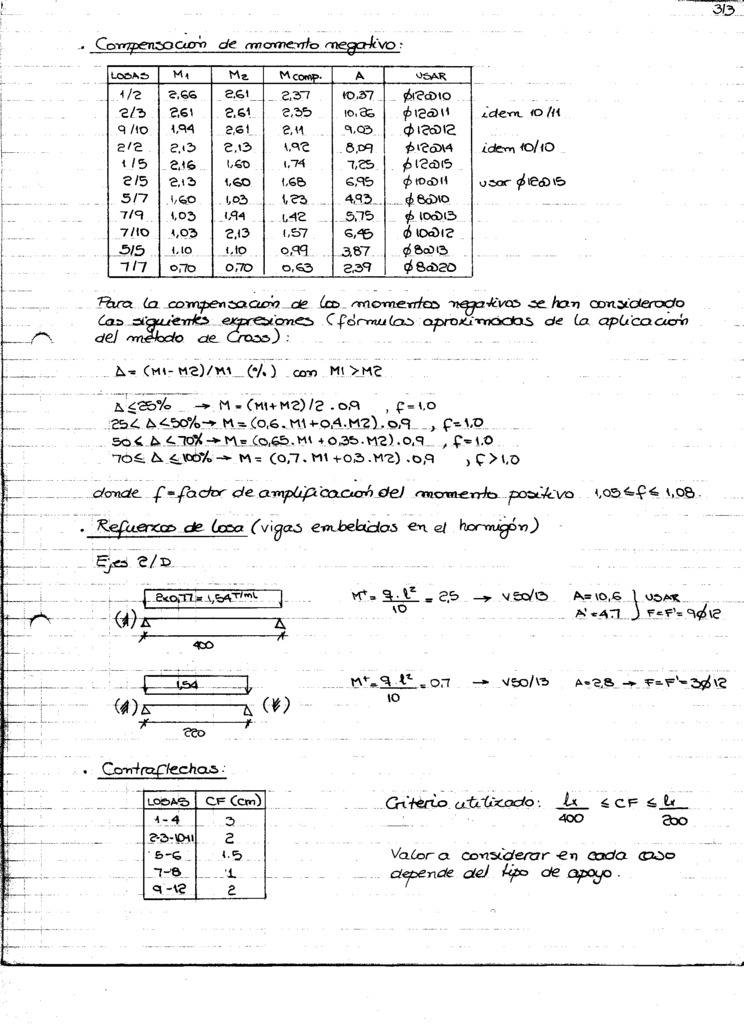 3/3
. Compensación de momento negativo:
LOSAS M1 M2 Mcomp. A USAR
1/2 2,66 2,61 2,37 10,37 ϕ12@10
2/3 2,61 2,61 2,35 10,26 ϕ12@11 idem 10/11
9/10 1,94 2,61 2,11 9,03 ϕ12@12
2/2 2,13 2,13 1,92 8,09 ϕ12@14 idem 10/10
1/5 2,16 1,60 1,74 7,25 ϕ12@15
2/5 2,13 1,60 1,68 6,95 ϕ10@11 usar ϕ12@15
5/7 1,60 1,03 1,23 4,93 ϕ8@10
7/9 1,03 1,94 1,42 5,75 ϕ10@13
7/10 1,03 2,13 1,57 6,45 ϕ10@12
5/5 1,10 1,10 0,99 3,87 ϕ8@13
7/7 0,70 0,70 0,63 2,39 ϕ8@20
Para la compensación de los momentos negativos se han considerado
las siguientes expresiones (fórmulas aproximadas de la aplicación
del método de Cross):
Δ= (M1-M2)/M1 (%) con M1>M2
Δ≤25% → M = (M1+M2)/2 . 0,9 , f=1,0
25< Δ<50% → M = (0,6.M1+0,4.M2).0,9 , f=1,0
50≤ Δ <70% → M = (0,65.M1+0,35.M2).0,9 , f=1,0
70≤ Δ ≤100% → M = (0,7.M1+0,3.M2).0,9 , f>1,0
donde f=factor de amplificación del momento positivo 1,05≤f≤1,08.
. Refuerzos de losa (vigas embebidas en el hormigón)
Ejes 2/D
2x0,77=1,54 T/ml M+ = q.l²/10 = 2,5 → V50/13 A=10,6 USAR
A'=4,7 F=F'=9ϕ12
400
1,54 M+ = q.l²/10 = 0,7 → V50/13 A=2,8 → F=F'=3ϕ12
220
. Contraflechas:
LOSAS CF (cm) Criterio utilizado: lx/400 ≤ CF ≤ lx/200
1-4 3
2-3-10-11 2
5-6 1.5 Valor a considerar en cada caso
7-8 1 depende del tipo de apoyo.
9-12 2